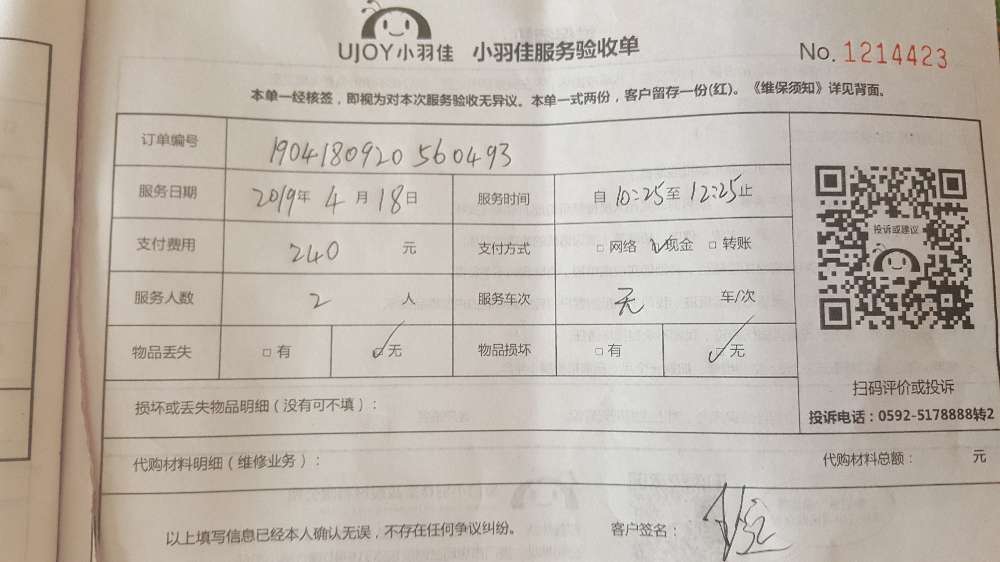 UJOY小羽佳 小羽佳服务验收单
No. 1214423
本单一经核签，即视为对本次服务验收无异议。本单一式两份，客户留存一份(红)。《维保须知》详见背面。
订单编号 190418092０560493
服务日期 2019年 4月18日 服务时间 自10:25至12:25止
投诉或建议
支付费用 240 元 支付方式 □ 网络 ☑现金 □ 转账
服务人数 2 人 服务车次 无 车/次
物品丢失 □ 有 ☑无 物品损坏 □ 有 ☑无
扫码评价或投诉
损坏或丢失物品明细（没有可不填）：
投诉电话：0592-5178888转2
代购材料明细（维修业务）： 代购材料总额： 元
以上填写信息已经本人确认无误，不存在任何争议纠纷。 客户签名：